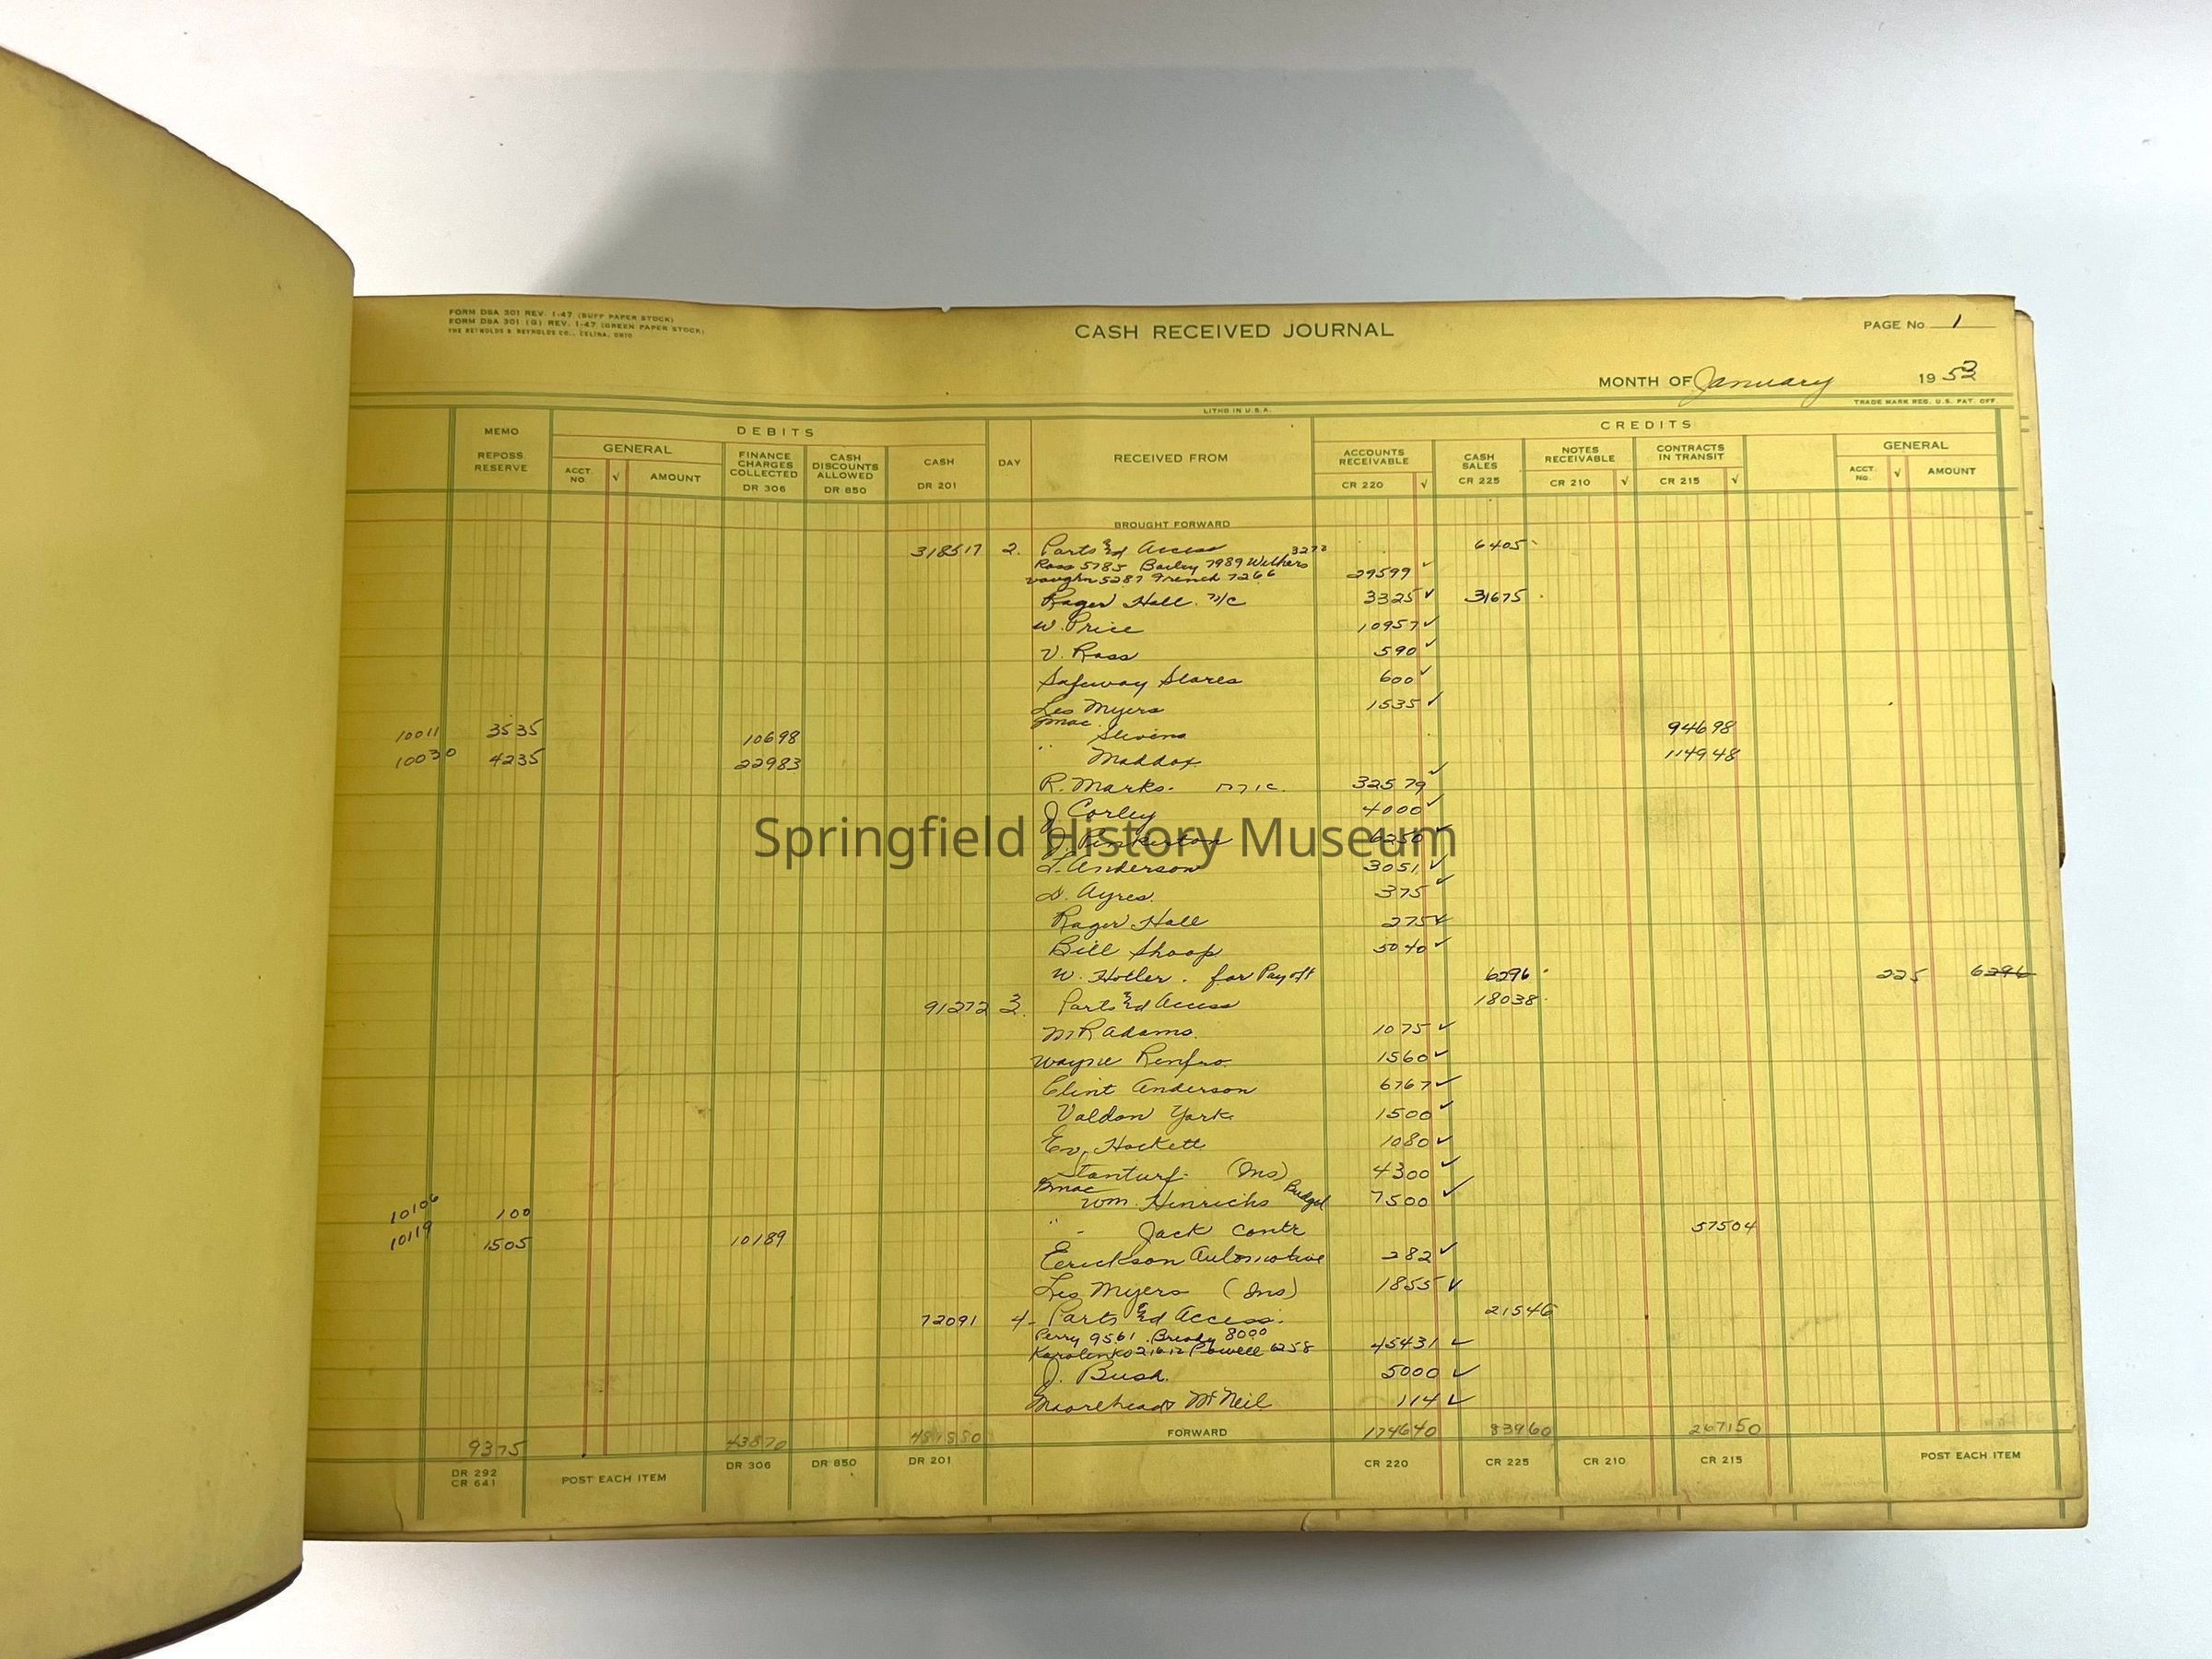 FORM DSA 301 REV. 1-47 (BUFF PAPER STOCK)
FORM DSA 301 (G) REV. 1-47 (GREEN PAPER STOCK)
THE REYNOLDS & REYNOLDS CO., CELINA, OHIO
CASH RECEIVED JOURNAL
PAGE No. 1
MONTH OF January 1953
LITHO IN U.S.A.
TRADE MARK REG. U.S. PAT. OFF.
DEBITS CREDITS
MEMO REPOSS RESERVE
GENERAL ACCT. NO. √ AMOUNT
FINANCE CHARGES COLLECTED DR 306
CASH DISCOUNTS ALLOWED DR 850
CASH DR 201
DAY
RECEIVED FROM
ACCOUNTS RECEIVABLE CR 220 √
CASH SALES CR 225
NOTES RECEIVABLE CR 210 √
CONTRACTS IN TRANSIT CR 215 √
GENERAL ACCT. NO. √ AMOUNT
BROUGHT FORWARD
318517 2. Parts & Access 6405
Ross 5785 Bailey 7989 Withers 3272
Vaughn 5287 French 7266 29599 ✓
Roger Hall n/c 3325 ✓ 31675
W. Price 10957 ✓
V. Ross 590 ✓
Safeway Stores 600 ✓
Les Myers 1535 ✓
Gmac
10011 3535 10698 Stevens 94698
10030 4235 22983 " Maddox 114948
R. Marks. n/c. 32579 ✓
J Corley 4000 ✓
J. Pinkerton 6250 ✓
L. Anderson 3051 ✓
D. Ayres. 375 ✓
Roger Hall 275 ✓
Bill Shoop 5040 ✓
W. Hotler. for Pay off 6296 225 6296
91272 3. Parts & Access 18038
M R Adams. 1075 ✓
Wayne Renfro. 1560 ✓
Clint Anderson 6767 ✓
Valdon York 1500 ✓
Ev. Hackett 1080 ✓
Stanturf. (Ins) 4300 ✓
Gmac
10106 100 Wm. Hinrichs Budget 7500 ✓
10119 1505 10189 " - Jack Contr 57504
Eerickson Automotive 282 ✓
Les Myers (Ins) 1855 ✓
72091 4- Parts & Access. 21546
Perry 9561. Brady 8000
Karolenko 21612 Powell 6258 45431 ✓
J. Bush. 5000 ✓
Moorehead & McNeil 114 ✓
9375 43870 481880 FORWARD 174640 83960 267150
DR 292 CR 641 POST EACH ITEM DR 306 DR 850 DR 201 CR 220 CR 225 CR 210 CR 215 POST EACH ITEM
Springfield History Museum